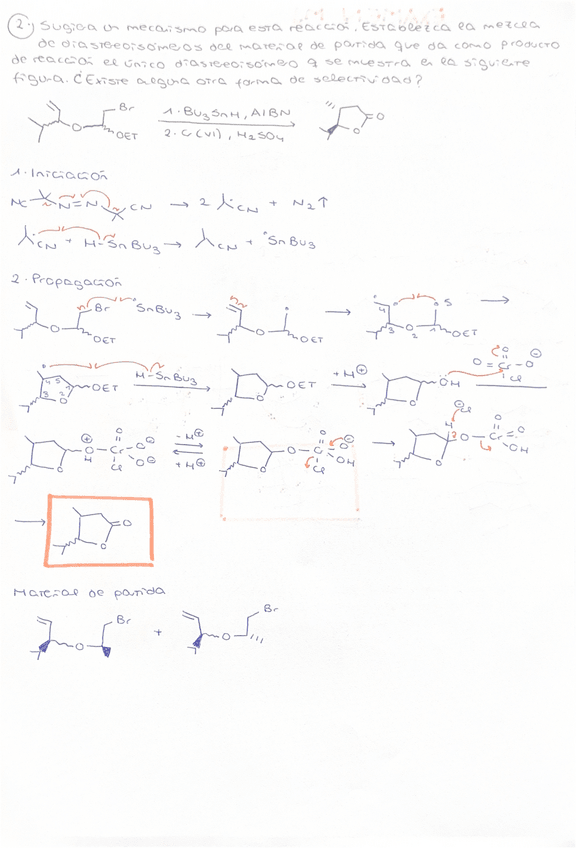 2. Sugiera un mecanismo para esta reacción. Establezca la mezcla
de diastereoisómeros del material de partida que da como producto
de reacción el único diastereoisómero q se muestra en la siguiente
figura. ¿Existe alguna otra forma de selectividad?
Br O OEt 1. Bu3SnH, AIBN 2. Cr(VI), H2SO4 O O
1. Iniciación
NC N=N CN → 2 CN + N2↑
CN + H-SnBu3 → CN + •SnBu3
2. Propagación
Br •SnBu3 O OEt → O OEt → 4 5 3 O 2 1 OEt →
4 5 1 3 2 O OEt H-SnBu3 → O OEt +H⊕ → O ÖH O=Cr-O⊖ O Cl
O ⊕O H O Cr O⊖ O⊖ Cl -H⊕ ⇌ +H⊕ O O Cr O O⊖ OH Cl → ⊖Cl H O O Cr O =O OH
→ O =O
Material de partida
Br O + O Br